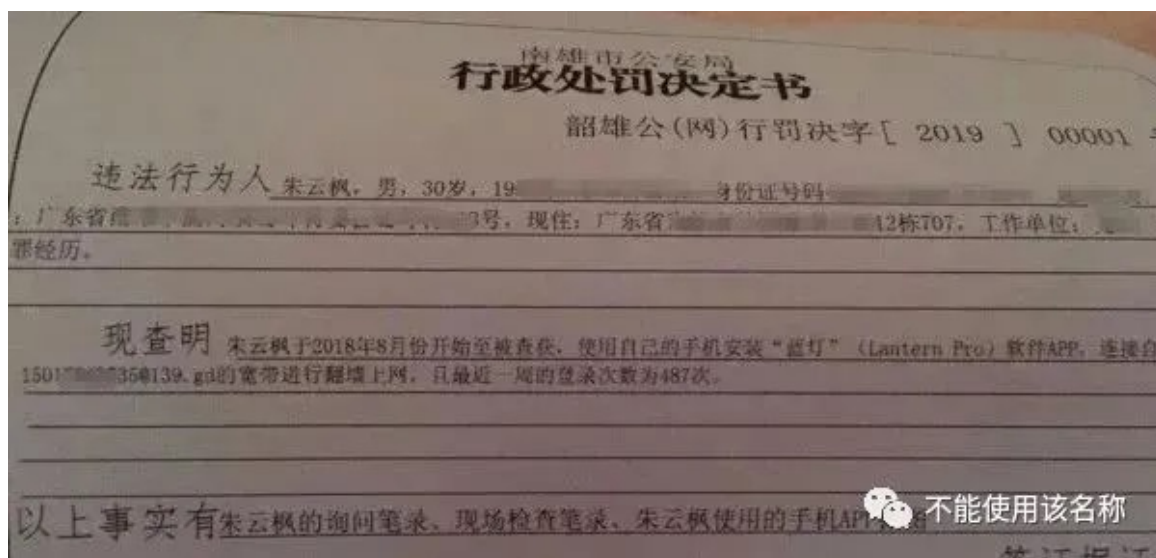 南雄市公安局
行政处罚决定书
韶雄公(网)行罚决字[ 2019 ] 00001
违法行为人 朱云枫，男，30岁，19 身份证号码
：广东省 3号，现住：广东省 12栋707，工作单位：
罪经历。
现查明 朱云枫于2018年8月份开始至被查获，使用自己的手机安装“蓝灯”（Lantern Pro）软件APP，连接自
150 350139.gd的宽带进行翻墙上网，且最近一周的登录次数为487次。
以上事实有朱云枫的询问笔录、现场检查笔录、朱云枫使用的手机AP
不能使用该名称